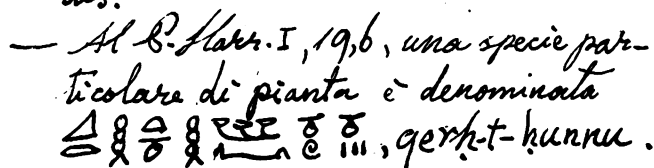 — Al P. Harr. I, 19,6, una specie par-
ticolare di pianta è denominata
, qerḥ-t-ḥunnu.